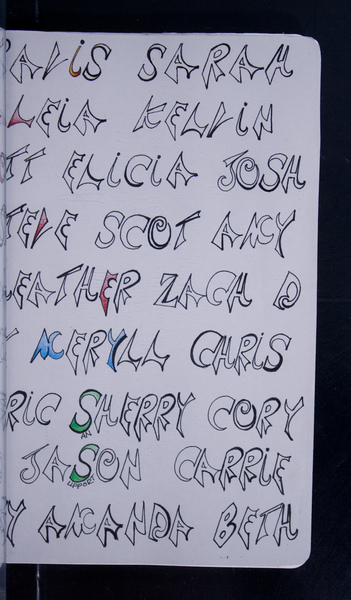 AVIS SARAH
LEIA KELVIN
TT ELICIA JOSH
TEVE SCOT AMY
EATHER ZACH D
MERYLL CHRIS
RIC SHERRY CORY
AN
JASON CARRIE
UPPORT
Y AMANDA BETH